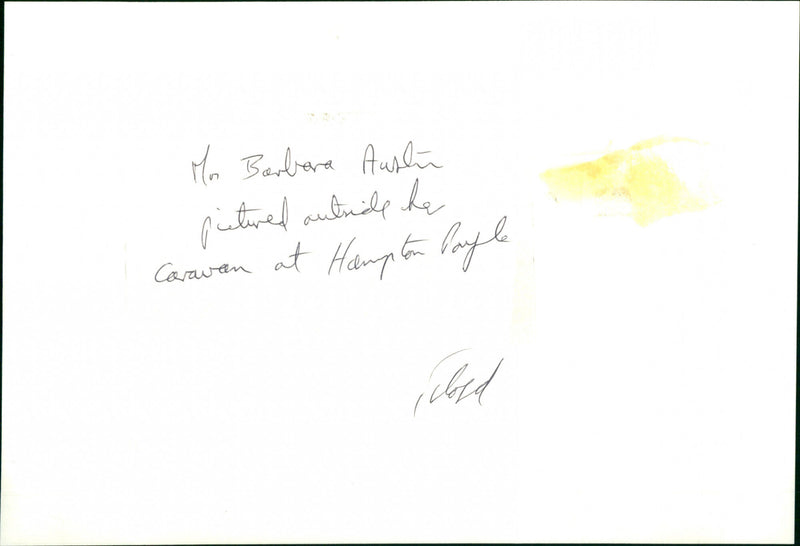 Mrs Barbara Austin
pictured outside her
caravan at Hampton Poyle